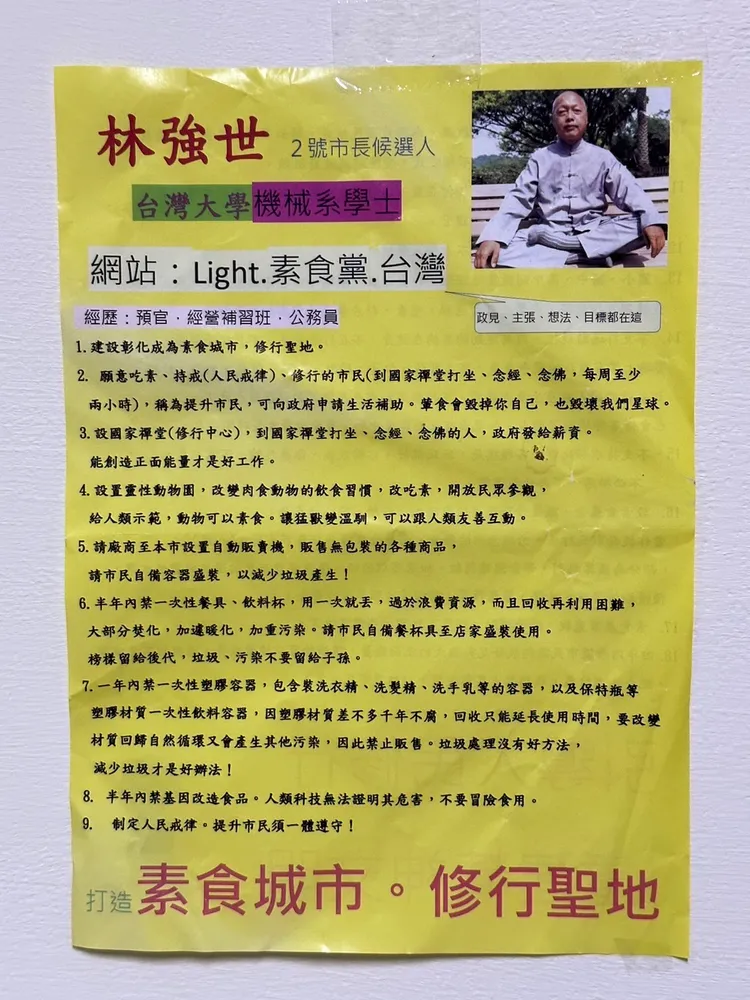 林強世 2號市長候選人
台灣大學機械系學士
網站：Light.素食黨.台灣
經歷：預官．經營補習班．公務員
政見、主張、想法、目標都在這
1.建設彰化成為素食城市，修行聖地。
2. 願意吃素、持戒(人民戒律)、修行的市民(到國家禪堂打坐、念經、念佛，每周至少
兩小時)，稱為提升市民，可向政府申請生活補助。葷食會毀掉你自己，也毀壞我們星球。
3.設國家禪堂(修行中心)，到國家禪堂打坐、念經、念佛的人，政府發給薪資。
能創造正面能量才是好工作。
4.設置靈性動物園，改變肉食動物的飲食習慣，改吃素，開放民眾參觀，
給人類示範，動物可以素食。讓猛獸變溫馴，可以跟人類友善互動。
5.請廠商至本市設置自動販賣機，販售無包裝的各種商品，
請市民自備容器盛裝，以減少垃圾產生！
6.半年內禁一次性餐具、飲料杯，用一次就丟，過於浪費資源，而且回收再利用困難，
大部分焚化，加遽暖化，加重污染。請市民自備餐杯具至店家盛裝使用。
榜樣留給後代，垃圾、污染不要留給子孫。
7.一年內禁一次性塑膠容器，包含裝洗衣精、洗髮精、洗手乳等的容器，以及保特瓶等
塑膠材質一次性飲料容器，因塑膠材質差不多千年不腐，回收只能延長使用時間，要改變
材質回歸自然循環又會產生其他污染，因此禁止販售。垃圾處理沒有好方法，
減少垃圾才是好辦法！
8. 半年內禁基因改造食品。人類科技無法證明其危害，不要冒險食用。
9. 制定人民戒律。提升市民須一體遵守！
打造素食城市。修行聖地